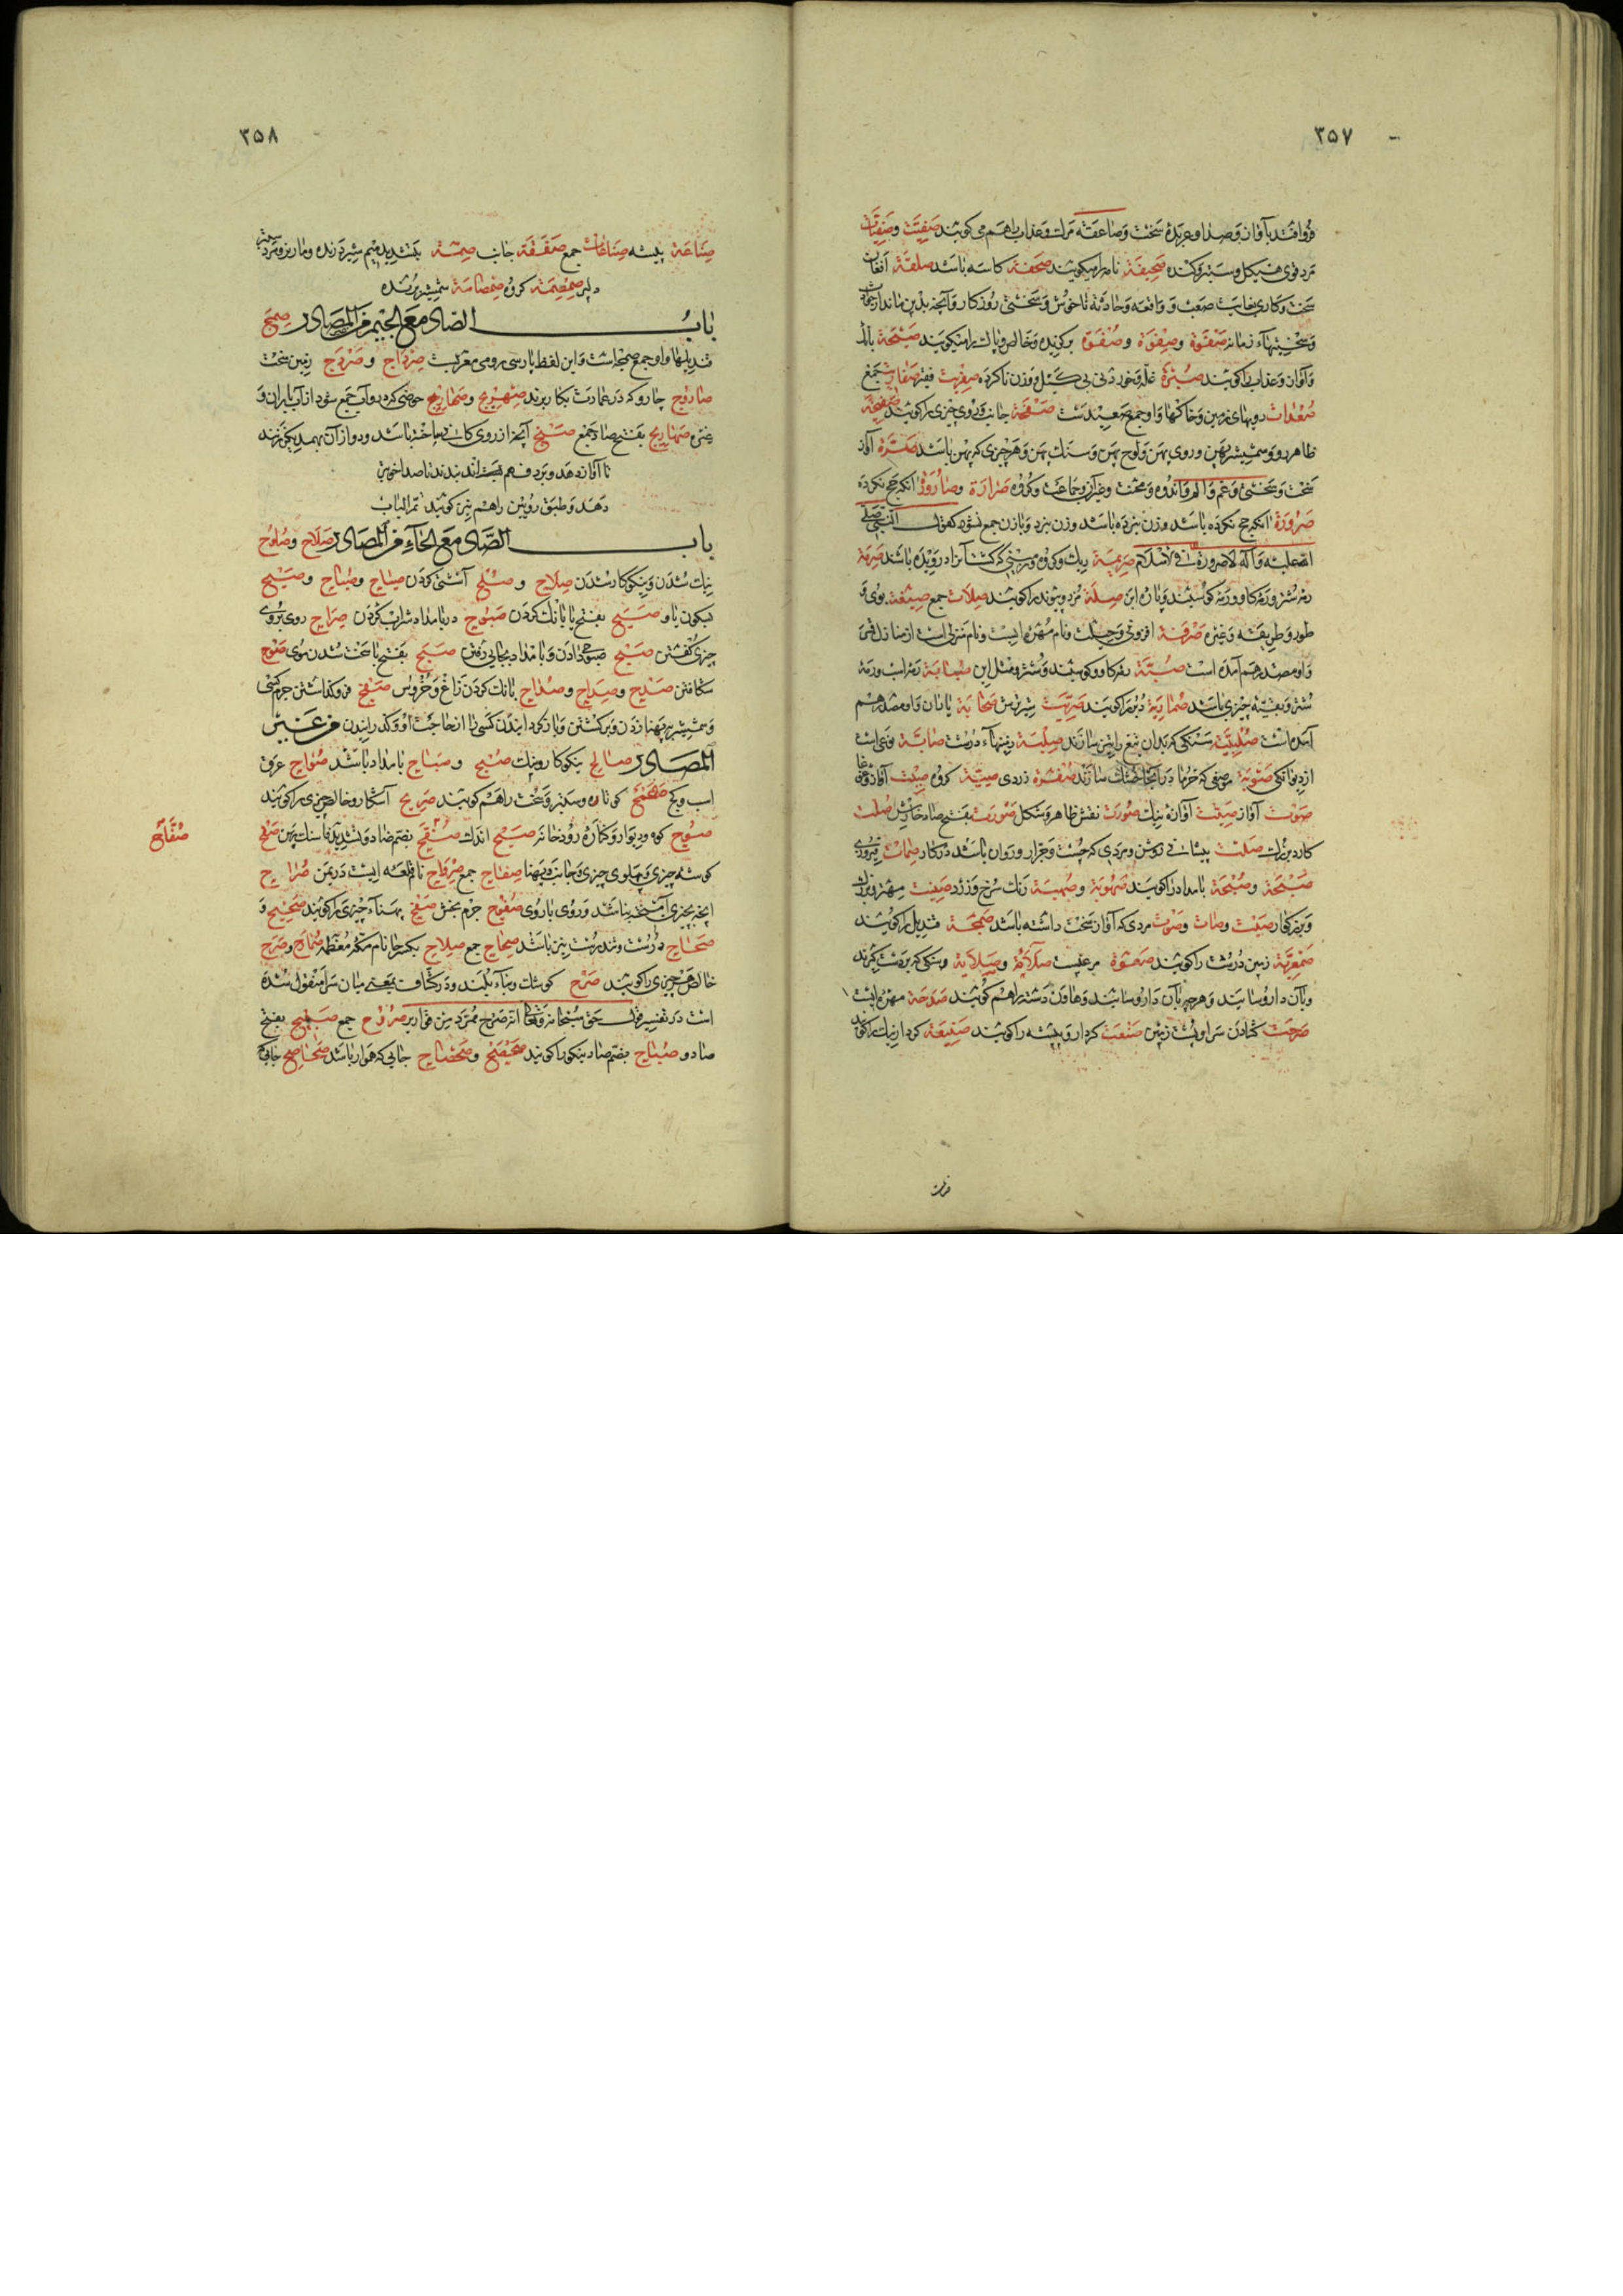 ۳۵۷
فرو افتد با آواز و صدا و عربده سخت و صاعقه مرك و عذاب را هم می کویند صفیت و صفتات
مرد قوی هیکل و ستبر و کنده صحیفة نامه را میکویند صحفة کاسه باشد صلقة آفتاب
سخت و کاری بغایت صعب و واقعه و حادثه ناخوش و سختی روزکار و آنچه بدین ماند از
و سختیهاء زمانه صفوة وصفوة وصفوة برکزیده و خالص و پاك را میکویند صیحة بانك
و آواز و عذاب را کویند صبرة غله و خوردنی بی کیل و وزن ناکرده صفریت فقیر جمع
صعدات رویهای زمین و خاکها و او جمع صعید ست صفحة جانب و روی چیزی را کویند صفیحة
ظاهر رو و شمشیر پهن و روی پهن و لوح پهن و سنك پهن و هر چیزی که پهن باشد صرة آواز
سخت و سختی و غم و الم و اندوه و محنت و غیر آن و جماعت و کروه صرارة وصارورة آنکه حج نکرده
صرورة آنکه حج نکرده باشد و زن نبرده باشد و زن نبرد و با زن جمع نشود کقول النبی صلی
الله علیه و آله لا صرورة فی الاسلام صریمة ریك و کروه باشد صرمة
رمه شتر و رمه کاو و رمه کوسفند و پاره ابر صلة مزد و پیوند را کویند صلات جمع صبغة بوی و
طور و طریقه و غیره صرفة افزونی و حیلت و نام مهره ایست و نام منزلی است از منازل قمر
و او مصدر هم آمده است صبة رمه کاو و کوسفند و شتر و مثل این صبابة رمه اسب و رمه
شتر و بقیه چیزی باشد صماریة دبر را کویند صحابة یاران و او مصدر هم
آمده است صلبیة سنکی که بدان تیغ را تیز سازند صلبة زمینهاء درشت صابة نوعی است
از دیوانکی صوبة موضعی که خرما در آنجا خشك سازند صفرة زردی صیتة کروه صیت آوازه
صوت آواز صیت آوازه نیك صورت نقش ظاهر و شکل صورت بفتح صاد خارش صلت
کارد بزرك صلت پیشانی روشن و مردی که چست و جرار و روان باشد در کار صمات
صبحة وصبحة بامداد را کویند صهوبة وصهبة رنك سرخ و زرد صیفت مهتر و بزرك
و پرهیزکار صیت وصات وصوت مردی که آواز سخت داشته باشد صمجة قندیل را کویند
صمعریة زمین درشت را کویند صعوة مرغیست صلاءة وصلایة سنکی که بردست کیرند
و با آن دارو سایند و هر چه با آن دارو سایند و هاون دسته را هم کویند صدحة مهره ایست
صرحت کشادن سرا و پشت زمین صنعت کردار و پیشه را کویند صنیعة کردار نیك را کویند
۳۵۸
صناعة پیشه صناعات جمع صفقة جانب صمة بتشدید میم شیر درنده و مار نر و مرد سخت
دلیر صمصمة کروه صمصامة شمشیر برنده
باب الصاد مع الجیم من المصادر صمج
قندیلها و او جمع صمجه است و این لفظ پارسی رومی معربست صرداج وصردج زمین سخت
صاروج چاروکه در عمارت بکار برند صهریج وصماریج حوضی که در و آب جمع شود از آب باران و
غیره صهاریج بفتح صاد جمع صنج آنچه از روی کاس ساخته باشد و دو از آن بهم دیکر زنند
تا آواز دهد و بر دف هم نیز بندند تا صدا خوش
دهد و طبق رویین را هم نیز کویند تمر الباب
باب الصاد مع الحاء من المصادر صلاح وصلوح
نیك شدن و نیکوکار شدن صلاح و صلح آشتی کردن صیاح وصیاح وصیح
بسکون یا و صیح بفتح یا بانك کردن صبوح در بامداد شراب کردن صراح روی بروی
چیزی کفتن صبح صبوح دادن و بامداد بجایی رفتن صبح بفتح با سخت شدن موی صوح
شکافتن صدح وصداح وصداح بانك کردن زاغ و خروس صفح فرو کذاشتن جرم کسی
و شمشیر بپهنا زدن و برکشتن و باز کردانیدن کسی را از حاجت او و کذرانیدن من غیر
المصادر صالح نیکوکار و نیك صبح وصباح بامداد باشد صواح عرق
اسب و کچ صمحمح کوتاه و ستبر و سخت را هم کویند صریح آشکار و خالص چیزی را کویند
صوح کوه و دیوار و کناره رودخانه صیح اندك صفح بضم صاد و تشدید فا سنك پهن صفح
صفاح
کوشه چیزی و پهلوی چیزی و جانب و پهنا صفاح جمع صرواح نام قلعه ایست در یمن صراح
آنچه بچیزی آمیخته نباشد و روی با روی صفوح جرم بخش صفح پهناء چیزی را کویند صحیح و
صحاح درست و تندرست نیز باشد صحاح جمع صلاح بکسر حا نام مکه معظمه صماح وصرح
خالص هر چیزی را کویند صرح کوشك و بناء بلند و در کشاف بمعنی میان سرا منقول شده
است در تفسیر قول حق سبحانه و تعالی انه صرح ممرد من قواریر صروح جمع صبیح بفتح
صاد و صباح بضم صاد نیکو را کویند صحصح وصحصاح جایی که هموار باشد صحاصح